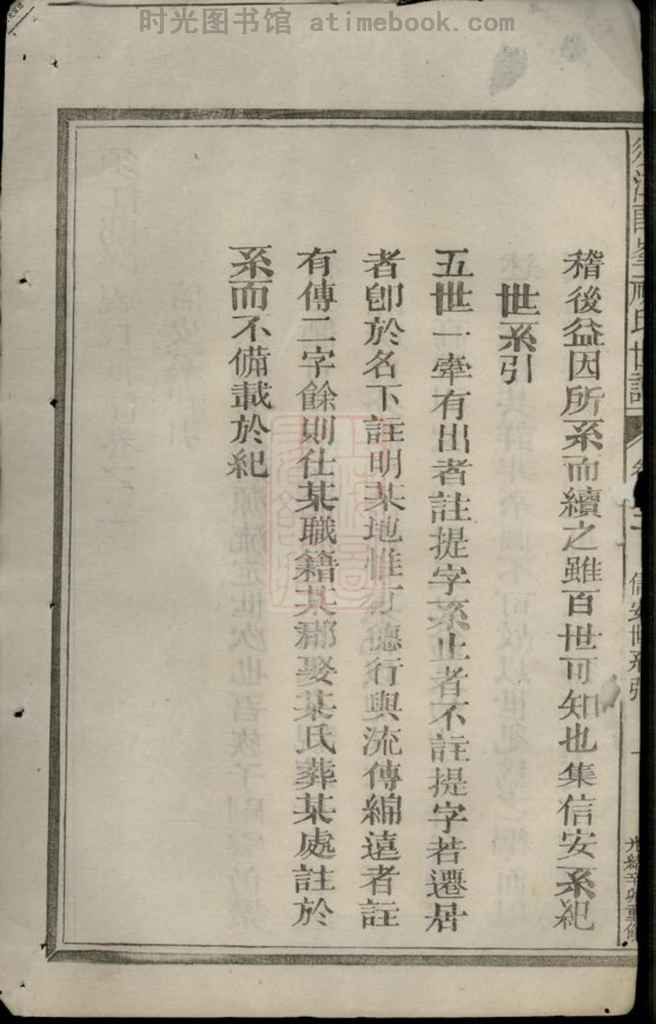 时光图书馆 atimebook.com
稽後益因所系而續之雖百世可知也集信安系紀
世系引
五世一牽有出者註提字系止者不註提字若遷居
者卽於名下註明某地惟有德行與流傳綿遠者註
有傳二字餘則仕某職籍某郡娶某氏葬某處註於
系而不備載於紀
氏世譜
信安世系引
光緒辛卯重修